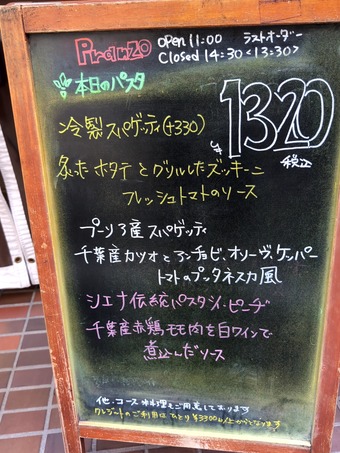 Pranzo open 11:00 ラストオーダー
Closed 14:30 <13:30>
本日のパスタ
¥1320
税込
冷製スパゲッティ(+330)
炙ったホタテとグリルしたズッキーニ
フレッシュトマトのソース
プーリア産スパゲッティ
千葉産カツオとアンチョビ、オリーヴ、ケッパー
トマトのプッタネスカ風
シエナ伝統パスタ ピーチ
千葉産赤鶏モモ肉を白ワインで
煮込んだソース
他、コース料理もご用意しております
クレジットのご利用はひとり¥3300以上からとなります